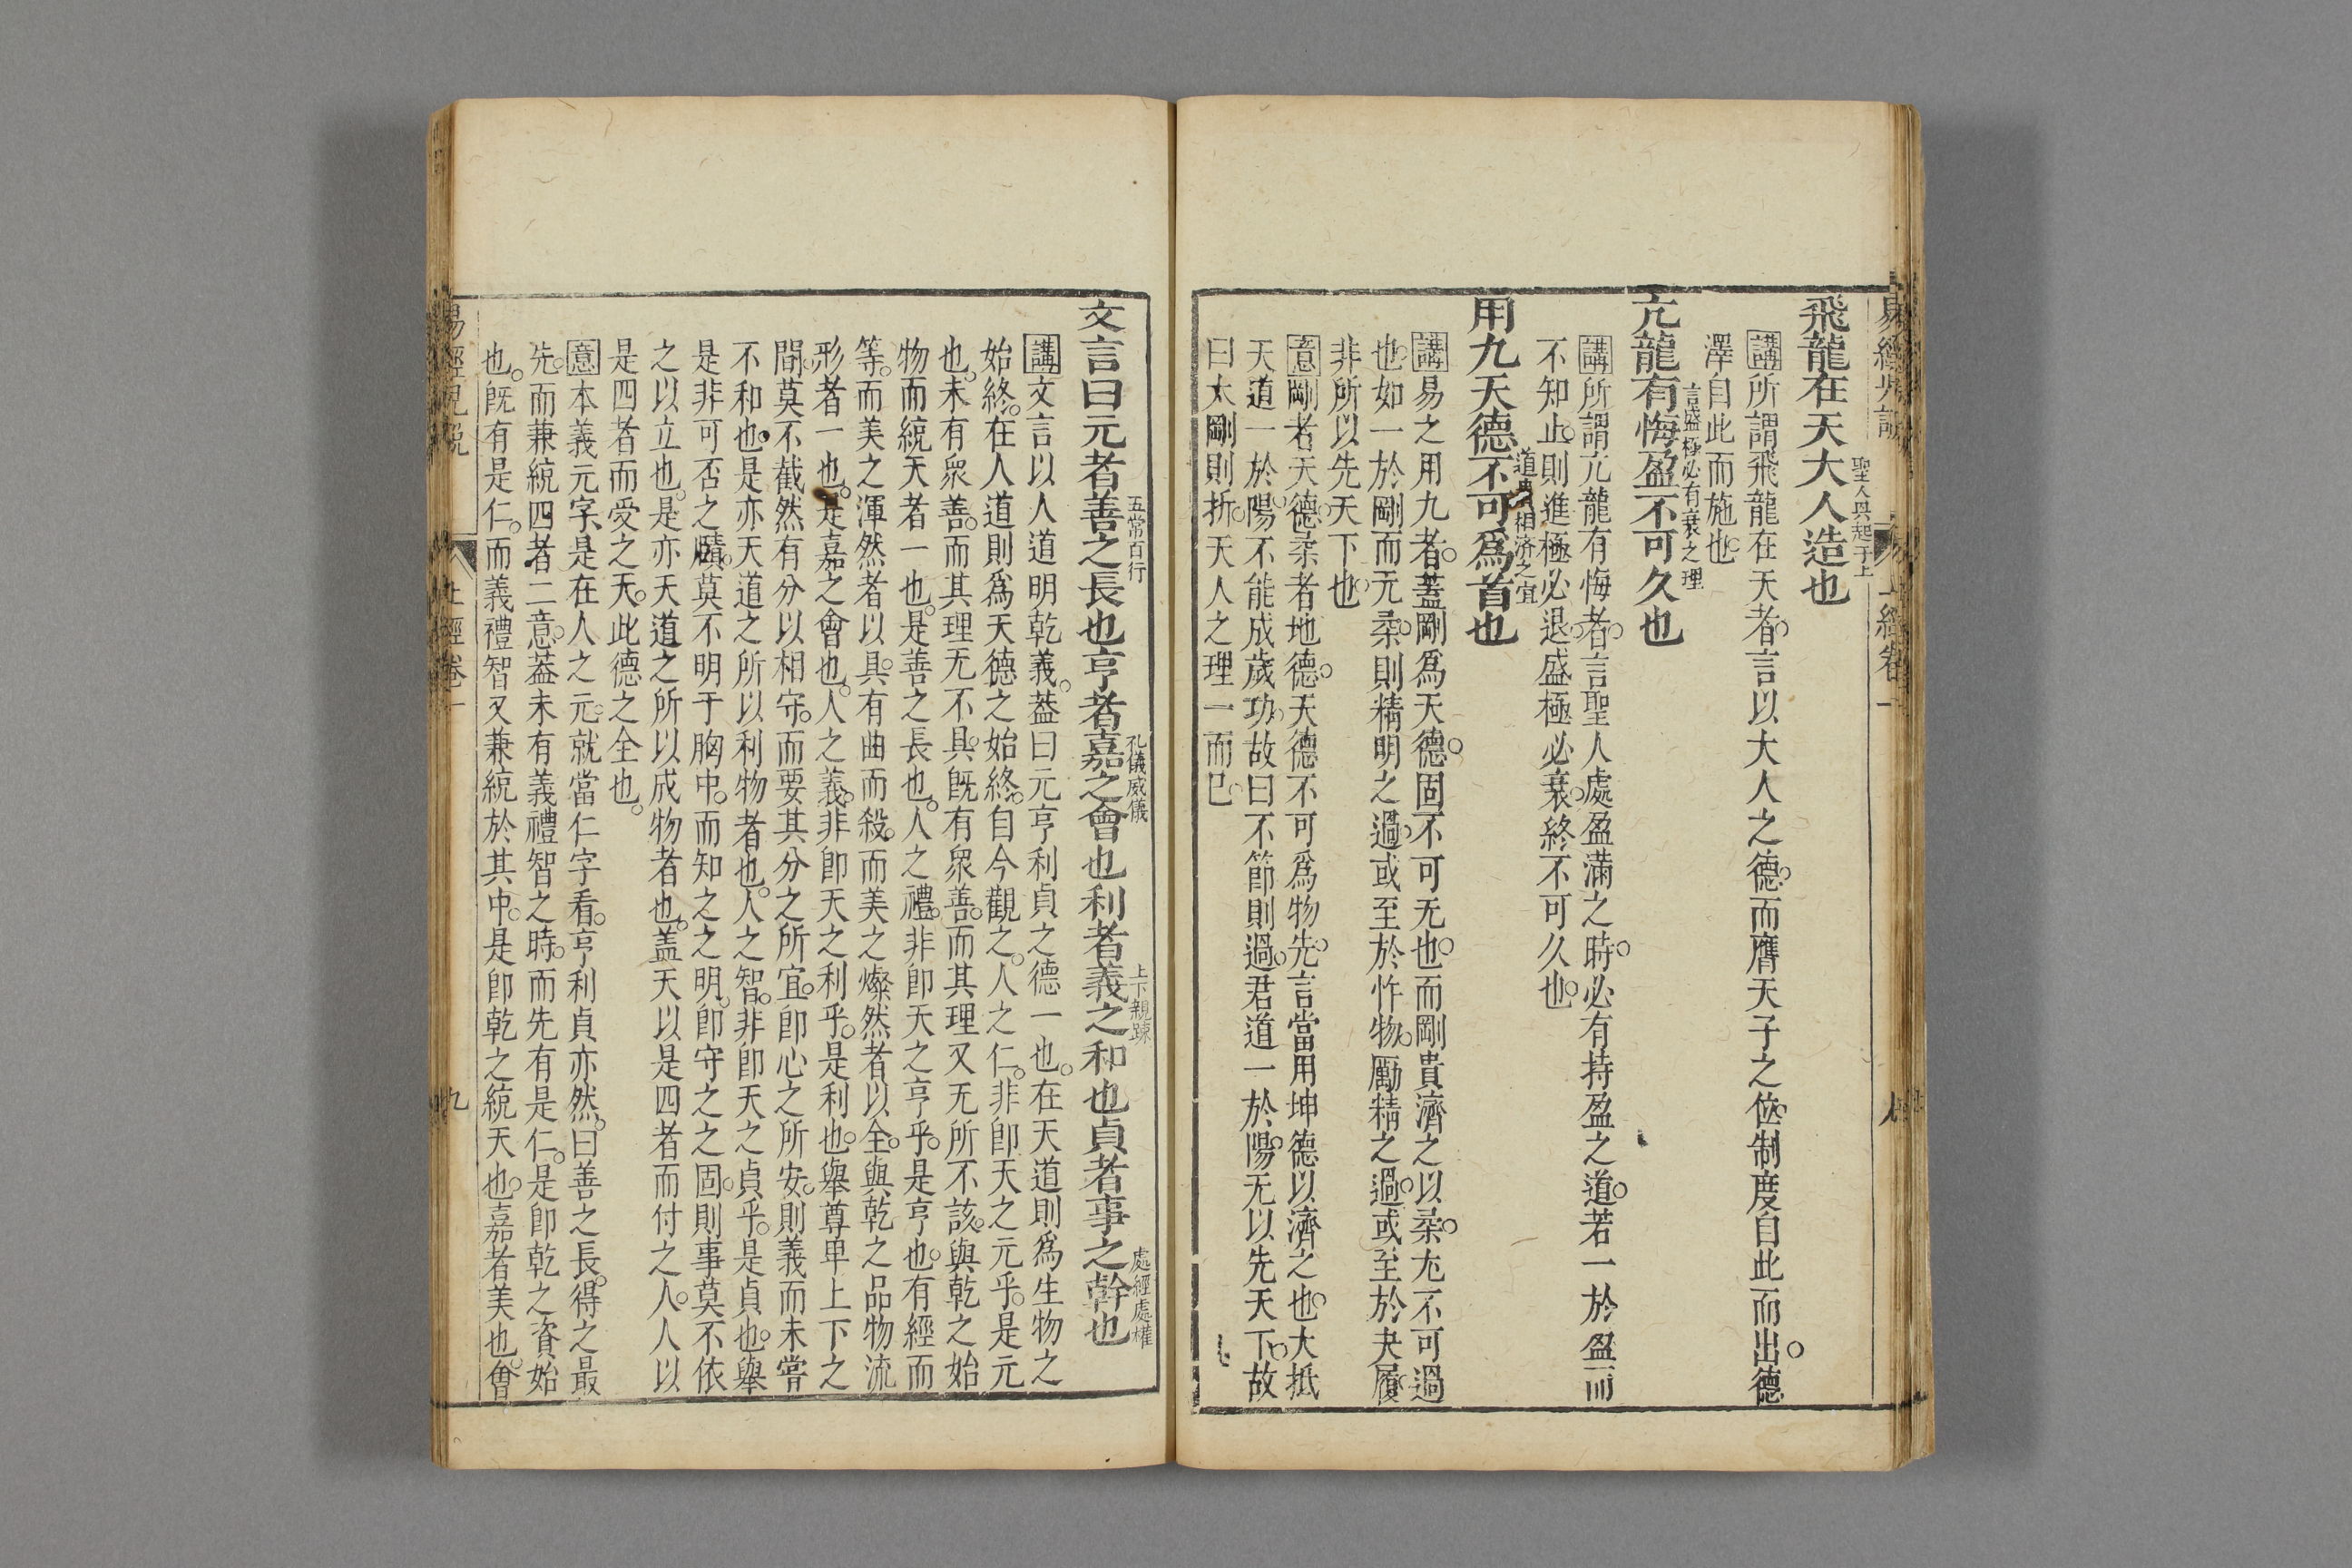 飛龍在天大人造也
聖人興起于上
講所謂飛龍在天者言以大人之德而膺天子之位制度自此而出德
澤自此而施也
亢龍有悔盈不可久也
言盛極必有衰之理
講所謂亢龍有悔者言聖人處盈滿之時必有持盈之道若一於盈而
不知止則進極必退盛極必衰終不可久也
用九天德不可爲首也
道相濟之宜
講易之用九者蓋剛爲天德固不可无也而剛貴濟之以柔尤不可過
也如一於剛而无柔則精明之過或至於忤物勵精之過或至於夬履
非所以先天下也
意剛者天德柔者地德天德不可爲物先言當用坤德以濟之也大抵
天道一於陽不能成歲功故曰不節則過君道一於陽无以先天下故
曰太剛則折天人之理一而已
文言曰元者善之長也亨者嘉之會也利者義之和也貞者事之幹也
五常百行
孔儀威儀
上下親疎
處經處權
講文言以人道明乾義葢曰元亨利貞之德一也在天道則爲生物之
始終在人道則爲天德之始終自今觀之人之仁非卽天之元乎是元
也未有眾善而其理无不具旣有眾善而其理又无所不該與乾之始
物而統天者一也是善之長也人之禮非卽天之亨乎是亨也有經而
等而美之渾然者以具有曲而殺而美之燦然者以全與乾之品物流
形者一也是嘉之會也人之義非卽天之利乎是利也舉尊卑上下之
間莫不截然有分以相守而要其分之所宜卽心之所安則義而未嘗
不和也是亦天道之所以利物者也人之智非卽天之貞乎是貞也舉
是非可否之賾莫不明于胸中而知之之明卽守之之固則事莫不依
之以立也是亦天道之所以成物者也蓋天以是四者而付之人人以
是四者而受之天此德之全也
意本義元字是在人之元就當仁字看亨利貞亦然曰善之長得之最
先而兼統四者二意葢未有義禮智之時而先有是仁是卽乾之資始
也旣有是仁而義禮智又兼統於其中是卽乾之統天也嘉者美也會
易經兒說
上經卷一
九